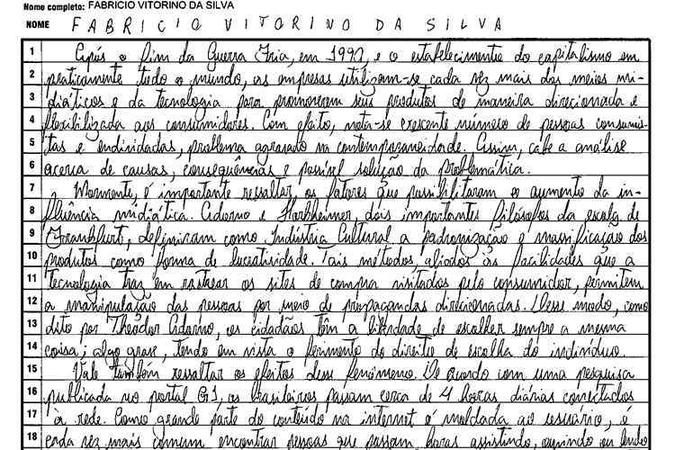 Nome completo: FABRICIO VITORINO DA SILVA
NOME FABRICIO VITORINO DA SILVA
1 Após o fim da Guerra Fria, em 1991, e o estabelecimento do capitalismo em
2 praticamente todo o mundo, as empresas utilizam-se cada vez mais dos meios mi-
3 diáticos e da tecnologia para promoverem seus produtos de maneira direcionada e
4 flexibilizada aos consumidores. Com efeito, nota-se crescente número de pessoas consumis-
5 tas e endividadas, problema agravado na contemporaneidade. Assim, cabe a análise
6 acerca de causas, consequências e possível solução da problemática.
7 Mormente, é importante ressaltar os fatores que possibilitaram o aumento da in-
8 fluência midiática. Adorno e Horkheimer, dois importantes filósofos da escola de
9 Frankfurt, definiram como Indústria Cultural a padronização e massificação dos
10 produtos como forma de lucratividade. Tais métodos, aliados às facilidades que a
11 tecnologia traz em rastrear os sites de compra visitados pelo consumidor, permitem
12 a manipulação das pessoas por meio de propagandas direcionadas. Desse modo, como
13 dito por Theodor Adorno, os cidadãos têm a liberdade de escolher sempre a mesma
14 coisa; algo grave, tendo em vista o ferimento do direito de escolha do indivíduo.
15 Vale também ressaltar os efeitos desse fenômeno. De acordo com uma pesquisa
16 publicada no portal G1, os brasileiros passam cerca de 4 horas diárias conectados
17 à rede. Como grande parte do conteúdo na internet é moldada ao usuário, é
18 cada vez mais comum encontrar pessoas que passam horas assistindo, ouvindo ou lendo